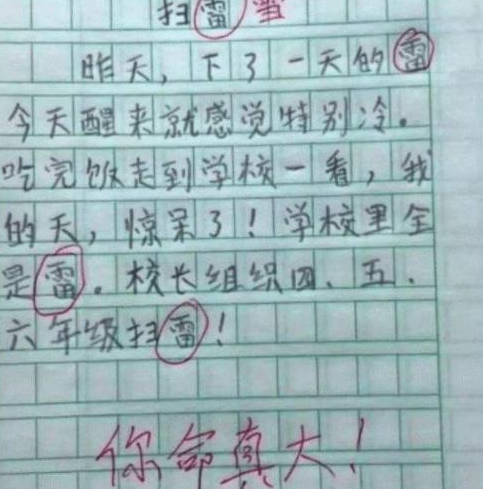 扫雷雪
昨天，下了一天的雷
今天醒来就感觉特别冷。
吃完饭走到学校一看，我
的天，惊呆了！学校里全
是雷。校长组织四、五、
六年级扫雷！
你命真大！